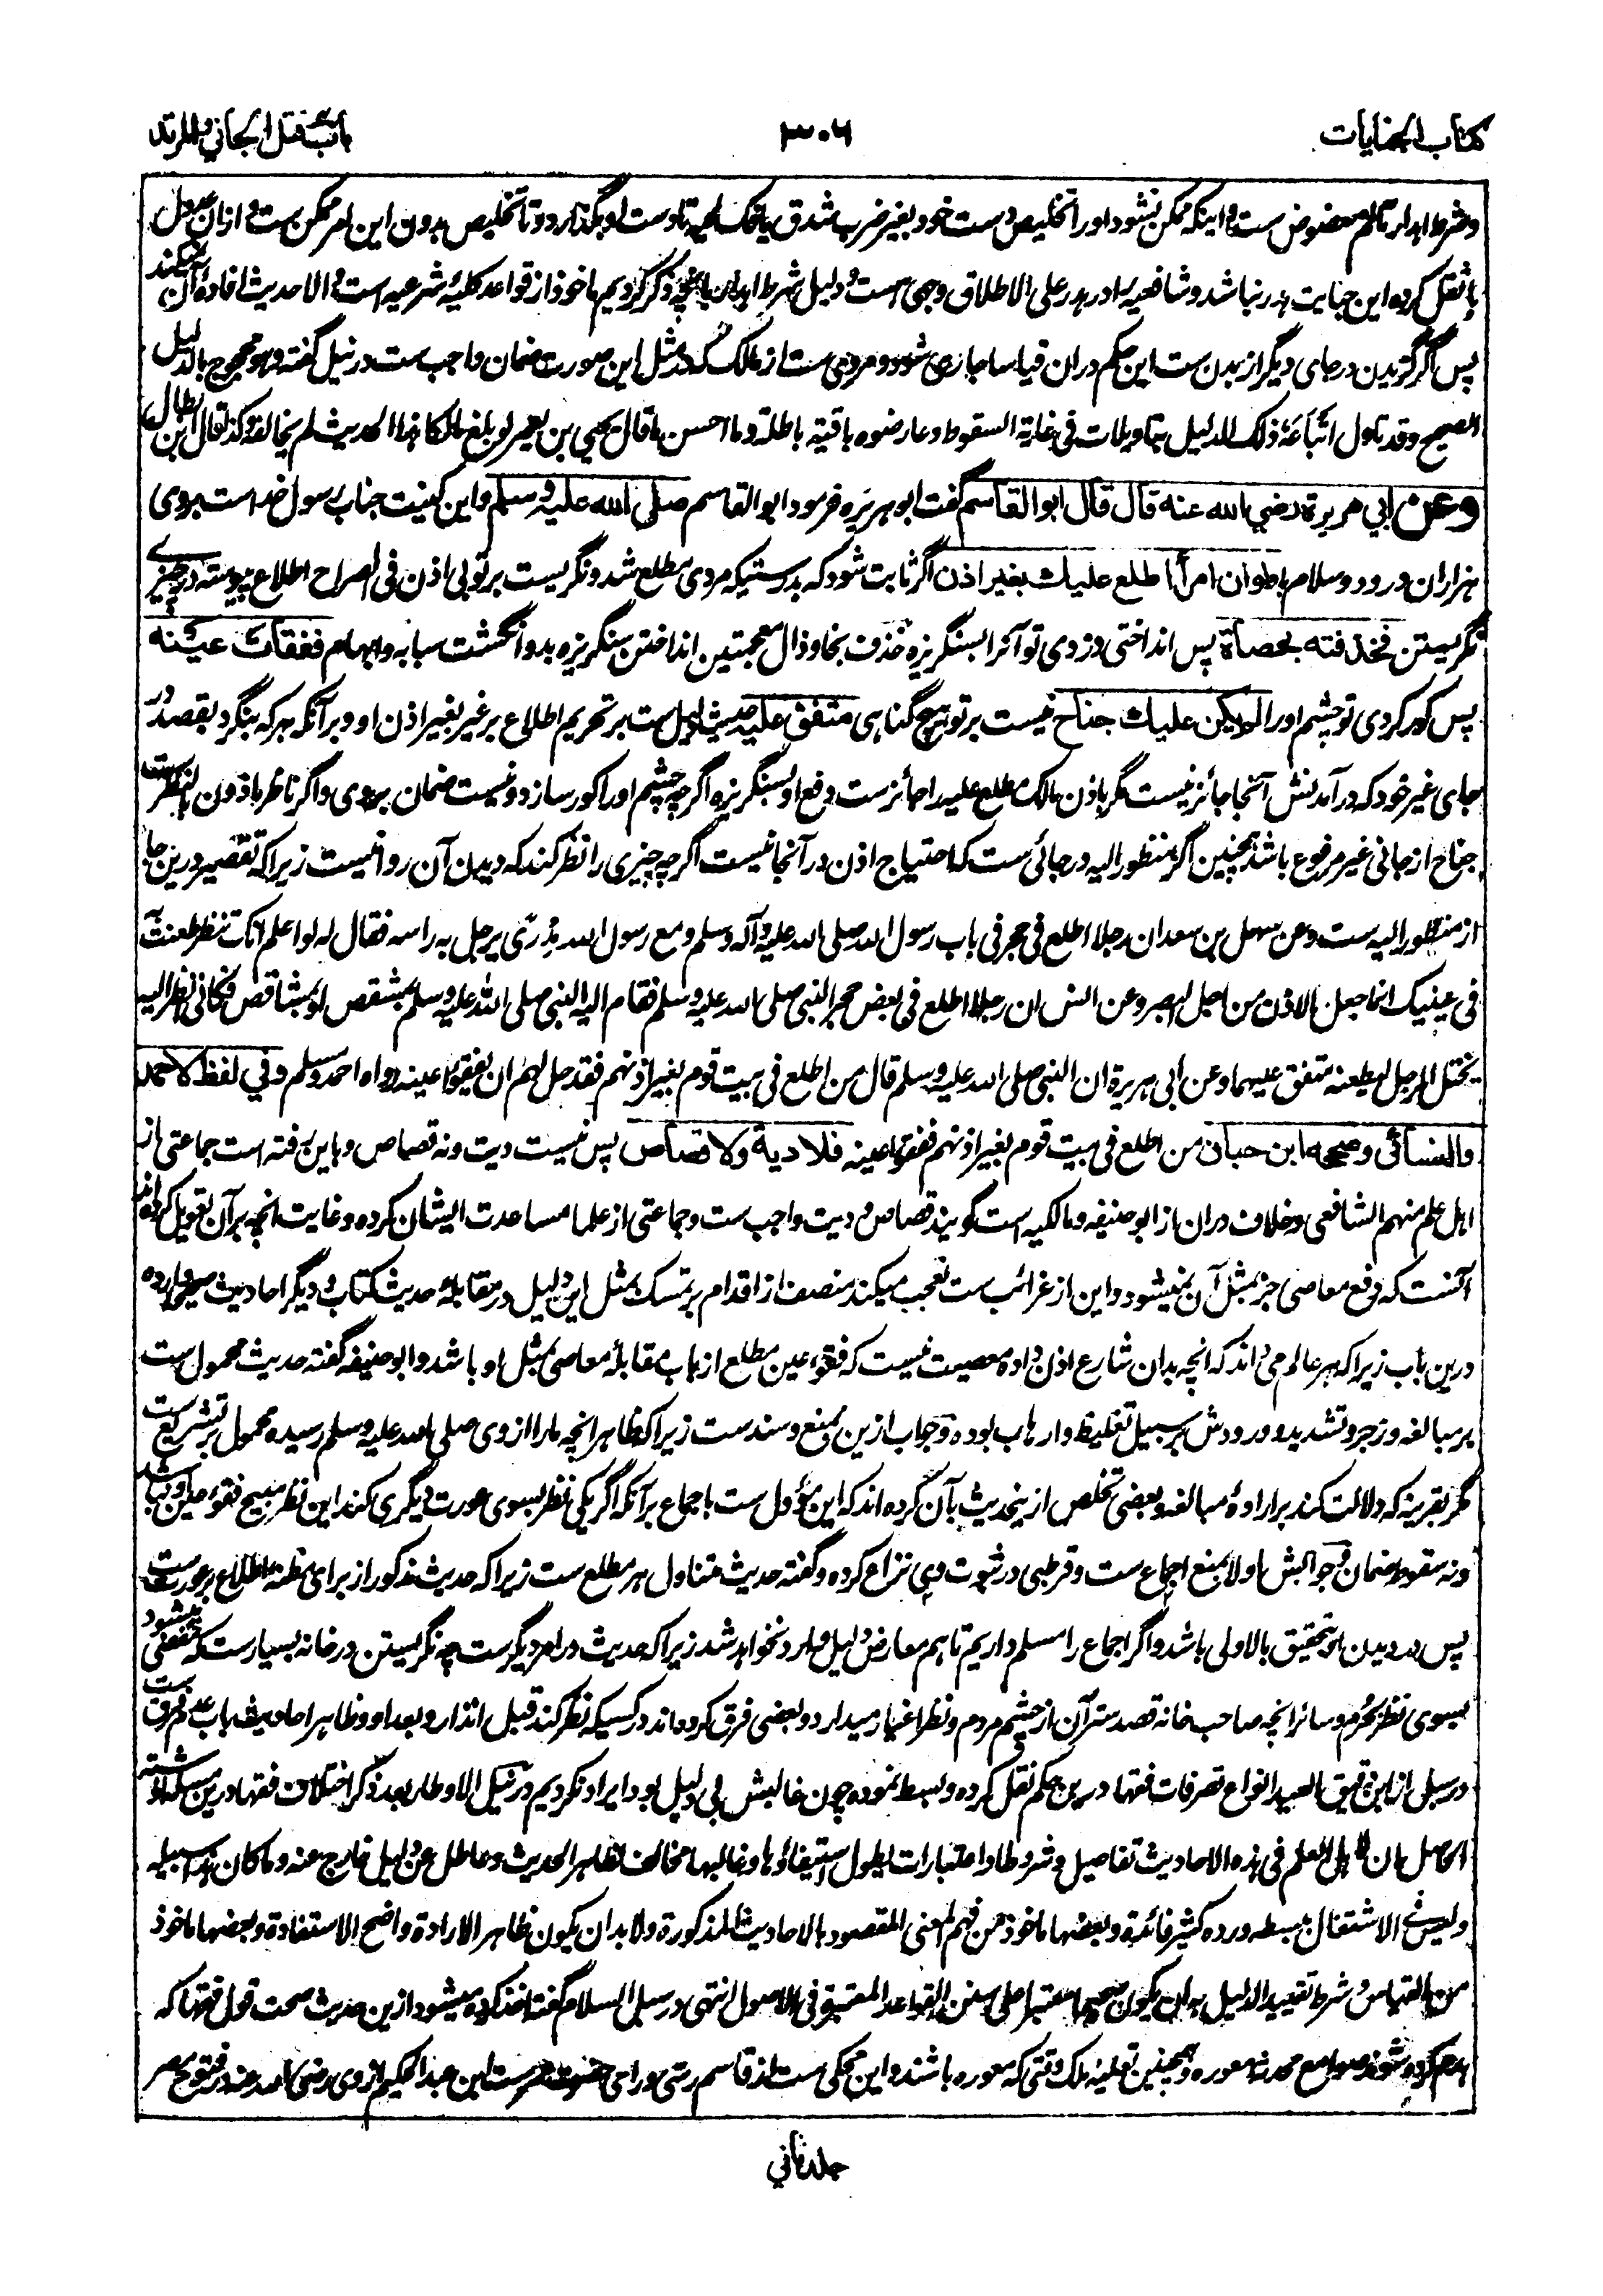 کتاب الجنایات
۳۰۶
باب قتل الجاني والمرتد
وشرط اهدار تالم معضوض ست و اینکه ممکن نشود اورا تخلیص دست خود بغیر ضرب شدق یا فک لحیه تا دست او بگذارد و تا تخلیص بدون این امر ممکن ست و ازان عدول
باثقل کرده این جنایت هدر نباشد و شافعیه را در هدر علی الاطلاق وجهی هست و دلیل شرط اهدار بانچه ذکر کردیم ماخوذ از قواعد کلیۀ شرعیه است و الا حدیث افادۀ آن نمیکند
پس اگر گزیدن در جای دیگر از بدن ست این حکم دران قیاسا جاری شود و مروی ست از مالک که در مثل این صورت ضمان واجب ست در نیل گفته وهو محجوج بالدلیل
الصحیح وقد تاول اتباعه ذلک الدلیل بتاویلات فی غایة السقوط وعارضوه باقیته باطلة وما احسن ما قال یحیی بن یعمر لو بلغ مالکا هذا الحدیث لم یخالفه وکذا قال ابن بطال
وعن ابي هريرة رضي الله عنه قال قال ابو القاسم گفت ابو هریره فرمود ابو القاسم صلى الله عليه وسلم و این کنیت جناب رسول خداست بروی
هزاران درود و سلام باد لو ان امرأ اطلع عليك بغير اذن اگر ثابت شود که بدرستیکه مردی مطلع شد و نگریست بر تو بی اذن فی الصراح اطلاع دیده ور چیزے
نگریستن فخذفته بحصاة پس انداختی و زدی تو آنرا بسنگریزه خذف بخا و ذال معجمتین انداختن سنگریزه بدو انگشت سبابه و ابهام ففقأت عينه
پس کور کردی تو چشم اورا لم يكن عليك جناح نیست بر تو هیچ گناهی متفق عليه حدیث دلیل ست بر تحریم اطلاع بر غیر بغیر اذن او و بر آنکه هر که بنگرد بقصد در
جای غیر خود که در آمدنش آنجا جائز نیست مگر باذن مالک مطلع علیه را جائز ست دفع او بسنگریزه اگرچه چشم اورا کور سازد و نیست ضمان بروی و اگر ناظر ماذون بالنظر ست
جناح از جانی غیر مرفوع باشد همچنین اگر منظور الیه در جائی ست که احتیاج اذن در آنجا نیست اگرچه چیزی را نظر کند که دیدن آن روا نیست زیراکه تقصیر درین جا
از منظور الیه ست وعن سهل بن سعد ان رجلا اطلع فی جحر فی باب رسول الله صلی الله علیه وآله وسلم ومع رسول الله مدری یرجل به راسه فقال له لو اعلم انک تنظر طعنت به
فی عینیک انما جعل الاذن من اجل البصر وعن انس ان رجلا اطلع فی بعض حجر النبی صلی الله علیه وسلم فقام الیه النبی صلی الله علیه وسلم بمشقص او بمشاقص فکانی انظر الیه
یختل الرجل لیطعنه متفق علیهما وعن ابی هریرة ان النبی صلی الله علیه وسلم قال من اطلع فی بیت قوم بغیر اذنهم فقد حل لهم ان یفقؤا عینه رواه احمد ومسلم وفي لفظ لاحمد
والنسائی وصححه ابن حبان من اطلع فی بیت قوم بغیر اذنهم ففقؤا عینه فلا دية ولا قصاص پس نیست دیت و نه قصاص و باین رفته است جماعتی از
اهل علم منهم الشافعی و خلاف دران از ابو حنیفه و مالکیه است گویند قصاص و دیت واجب ست و جماعتی از علما مساعدت ایشان کرده و غایت انچه بر آن تعویل کرده اند
آنست که دفع معاصی جز بمثل آن نمیشود و این از غرائب ست تعجب میکند منصف از اقدام بر تمسک بمثل این دلیل در مقابلۀ حدیث کتاب و دیگر احادیث صحیحه وارده
درین باب زیراکه هر عالم میداند که انچه بدان شارع اذن داده معصیت نیست که فقؤ عین مطلع از باب مقابلۀ معاصی بمثل او باشد و ابو حنیفه گفته حدیث محمول ست
بر مبالغه و زجر و تشدید و ورودش بر سبیل تغلیظ و ارهاب بوده و جواب ازین بمنع و سند ست زیراکه ظاهر انچه مارا از وی صلی الله علیه وسلم رسیده محمول بر تشریع ست
مگر بقرینه که دلالت کند بر ارادۀ مبالغه و بعضی تخلص ازین حدیث بآن کرده اند که این مؤول ست باجماع بر آنکه اگر یکی نظر بسوی عورت دیگری کند این نظر مبیح فقوء عین او نباشد
و نه سقوط ضمان و جوابش اولا بمنع اجماع ست و قرطبی در ثبوت وی نزاع کرده و گفته حدیث متناول هر مطلع ست زیراکه حدیث مذکور از برای مظنه اطلاع بر عورت ست
پس در دیدن او بتحقیق بالاولی باشد و اگر اجماع را مسلم داریم تا هم معارض دلیل وارد نخواهد شد زیراکه حدیث در امر دیگر ست چه نگریستن در خانه بسیار ست که مفضی میشود
بسوی نظر بحرم و سائر انچه صاحب خانه قصد ستر آن از چشم مردم و نظر اغیار میدارد و بعضی فرق کرده اند در کسیکه نظر کند قبل انذار و بعد او و ظاهر احادیث باب عدم فرق ست
در سبل از ابن دقیق العید انواع تصرفات فقها درین حکم نقل کرده و بسط نموده چون غالبش بی دلیل بود ایراد نکردیم در نیل الاوطار بعد ذکر اختلاف فقها درین مسئله نوشته
الحاصل ان لاهل العلم فی هذه الاحادیث تفاصیل وشروطا واعتبارات یطول استیفاؤها وغالبها مخالف لظاهر الحدیث وعاطل عن دلیل خارج عنه وما کان هذا سبیله
ولیس الاشتغال ببسطه ورده کثیر فائدة وبعضها ماخوذ من فهم المعنی المقصود بالاحادیث المذکورة ولا بد ان یکون ظاهر الارادة واضح الاستفادة وبعضها ماخوذ
من القیاس وشرط تقیید الدلیل به ان یکون صحیحا معتبرا علی سنن القواعد المعتبرة فی الاصول انتهی در سبل السلام گفته اخذ کرده میشود ازین حدیث صحت قول فقها که
هدم کرده شود صوامع محدثه معوره و همچنین تعلیۀ ملک وقتی که معوره باشند و این محکی ست از قاسم رسی و رای ابن عبد الحکیم از وی رضی الله عنه در فتوح مصر
جلد ثاني